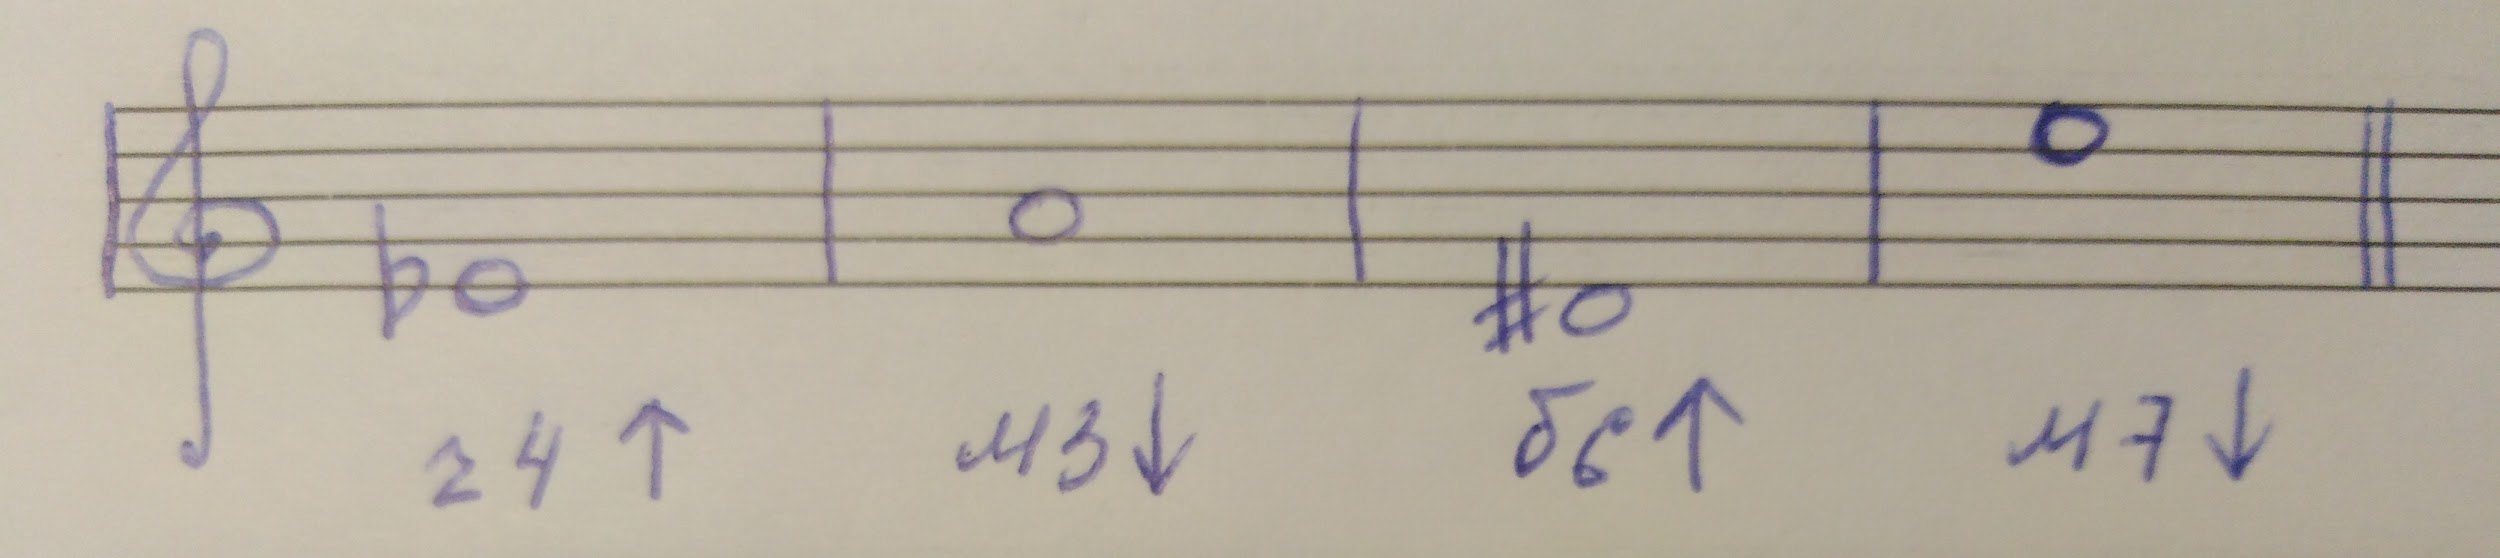 ч4 ↑ м3 ↓ б6 ↑ м7 ↓